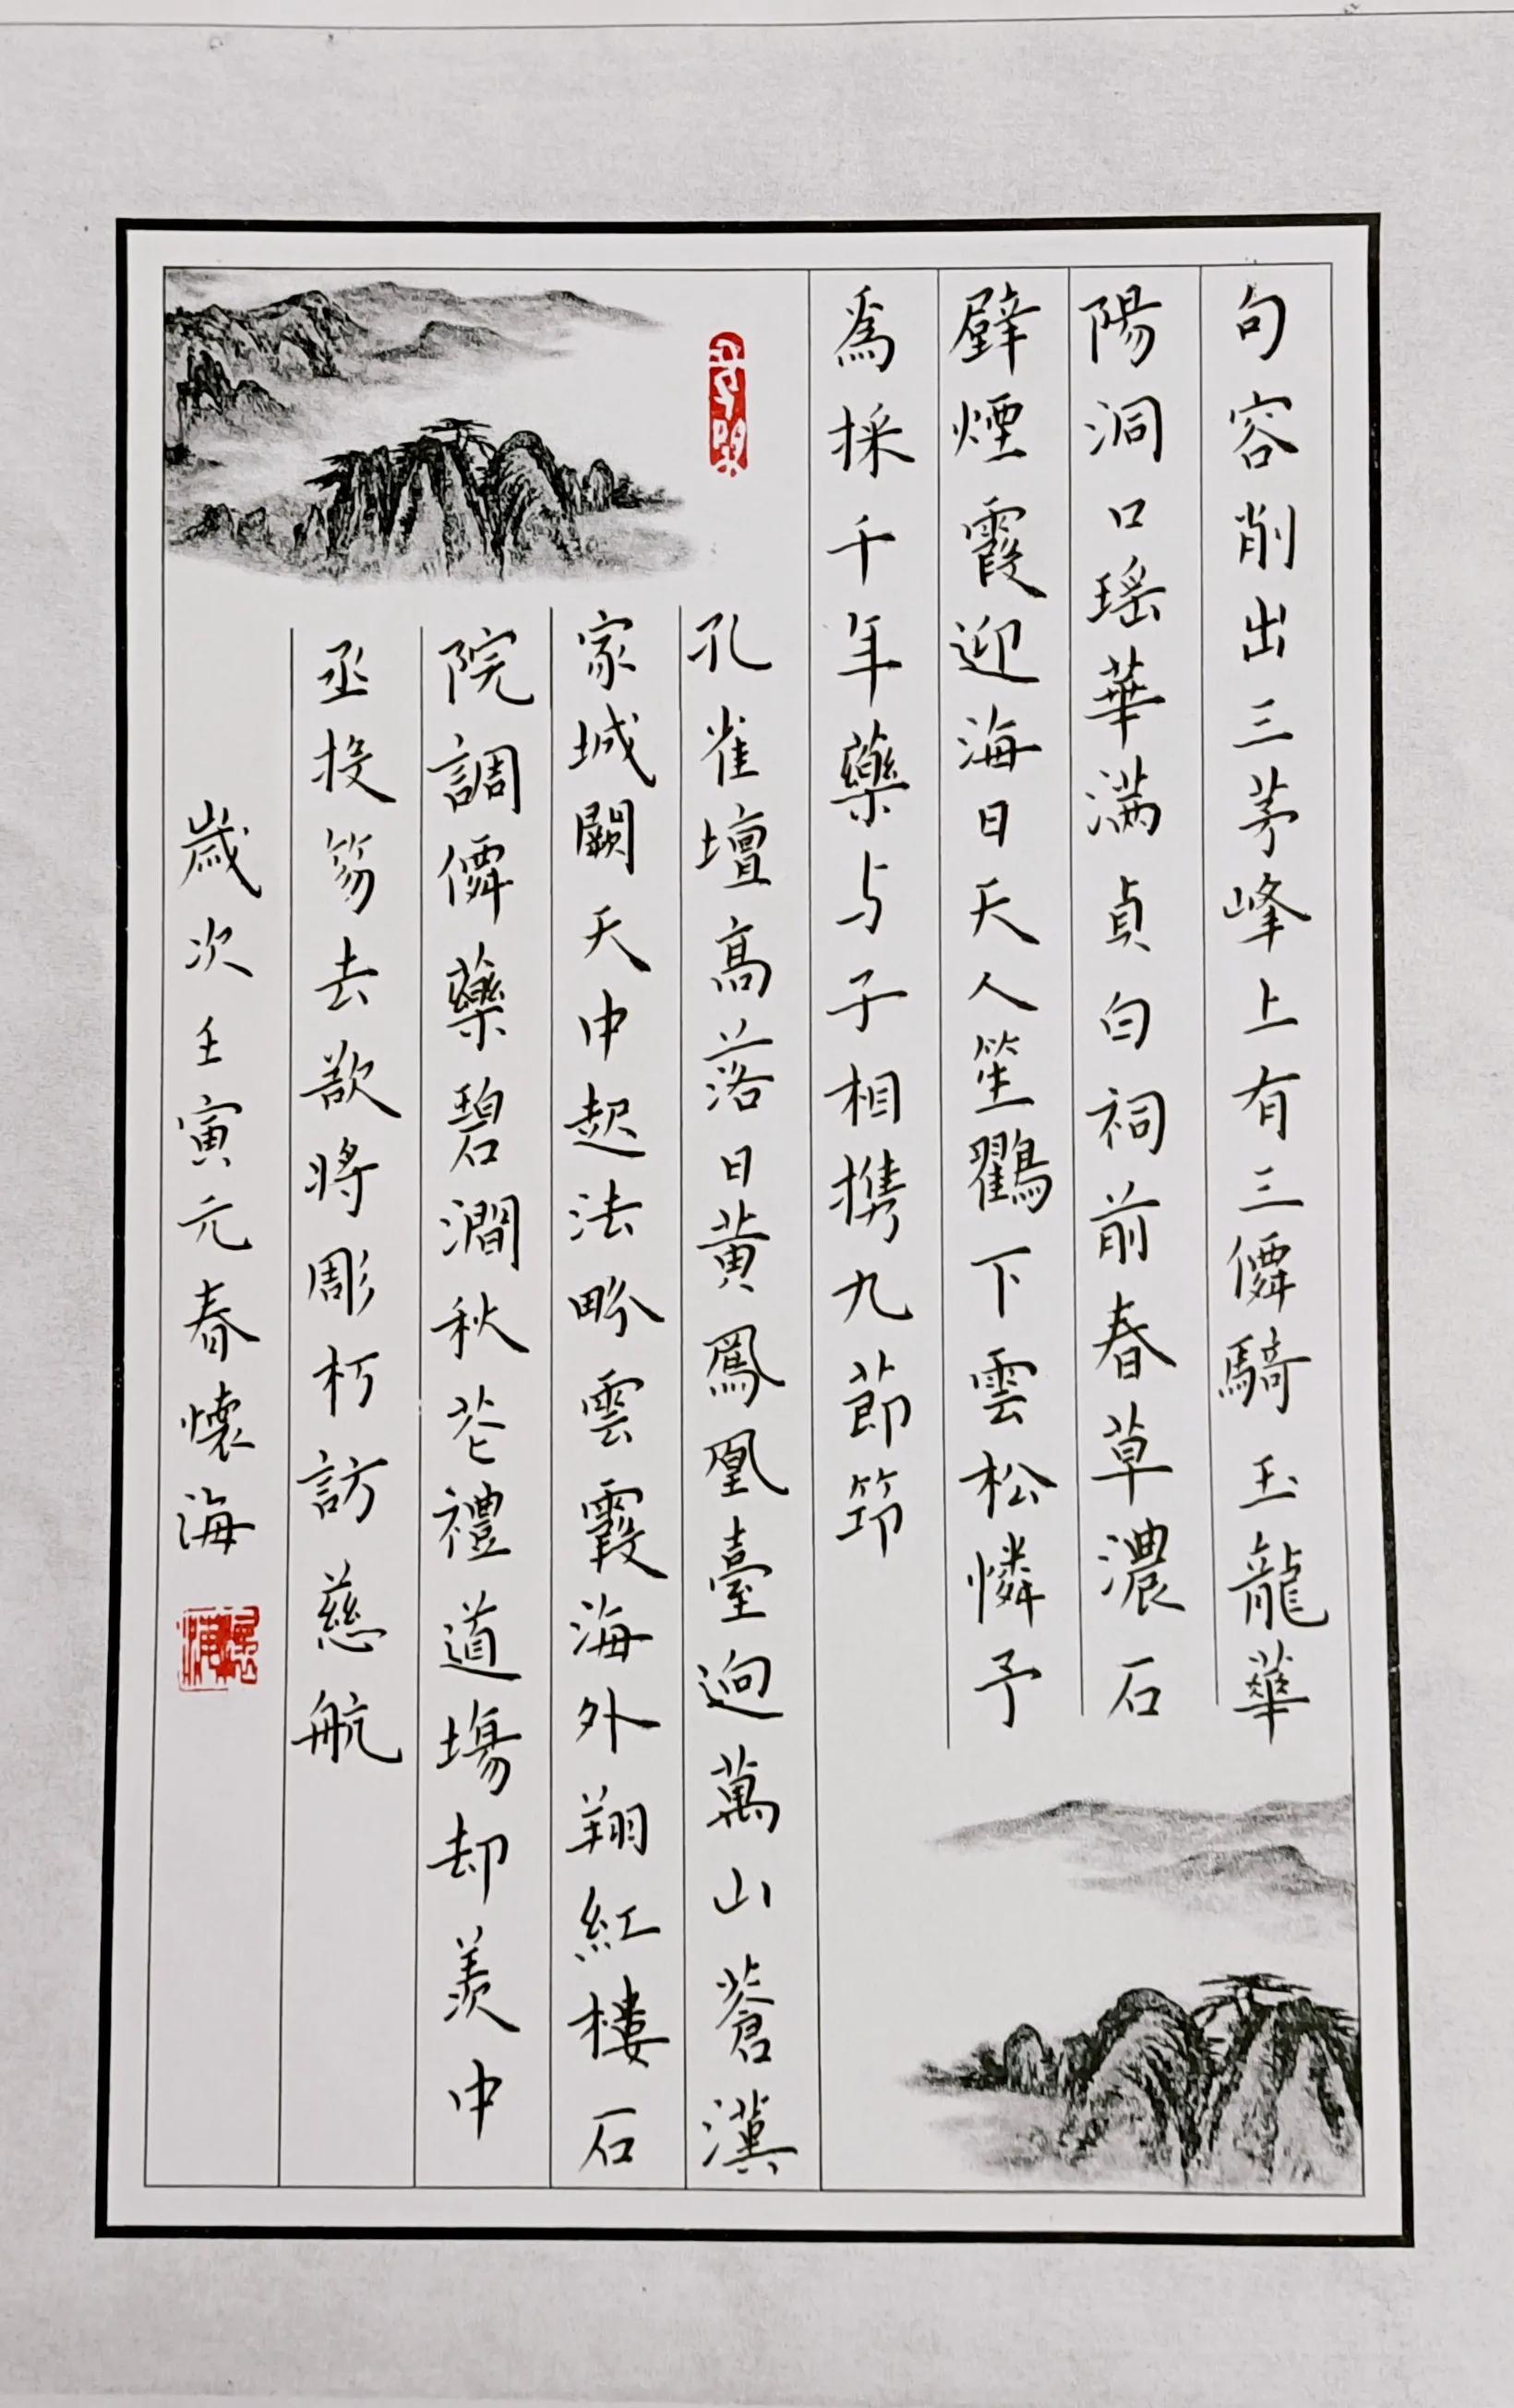 句容削出三茅峰上有三僊騎玉龍華
陽洞口瑤華滿貞白祠前春草濃石
壁煙霞迎海日天人笙鶴下雲松憐予
為採千年藥与子相携九節筇
孔雀壇高落日黃鳳凰臺迥萬山蒼漢
家城闕天中起法眕雲霞海外翔紅樓石
院調僊藥碧澗秋花禮道場却羨中
丞投笏去欲將彫朽訪慈航
歲次壬寅元春懷海
懷海